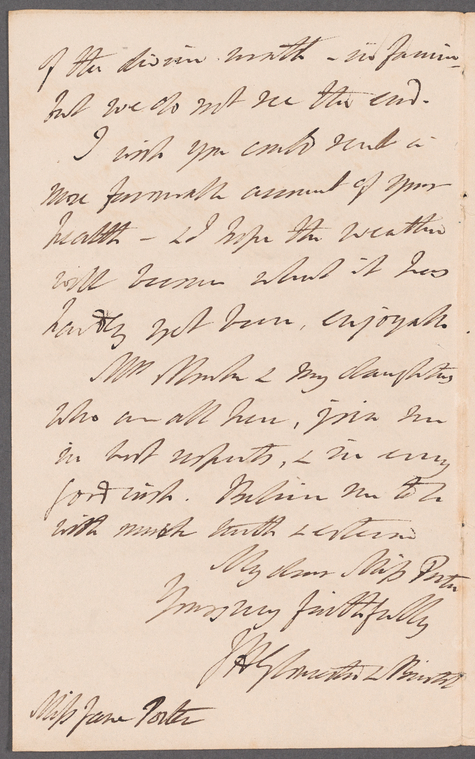 of the divine wrath - in famine,
but we do not see the end.
I wish you could send a
more favourable account of your
health - & I hope the weather
will become what it has
hardly yet been, enjoyable.
Mrs Monk & my daughters
who are all here, join me
in best respects, & in every
good wish. Believe me to be
with much truth & esteem
My dear Miss Porter
Yours very faithfully
J H Gloucester & Bristol
Miss Jane Porter